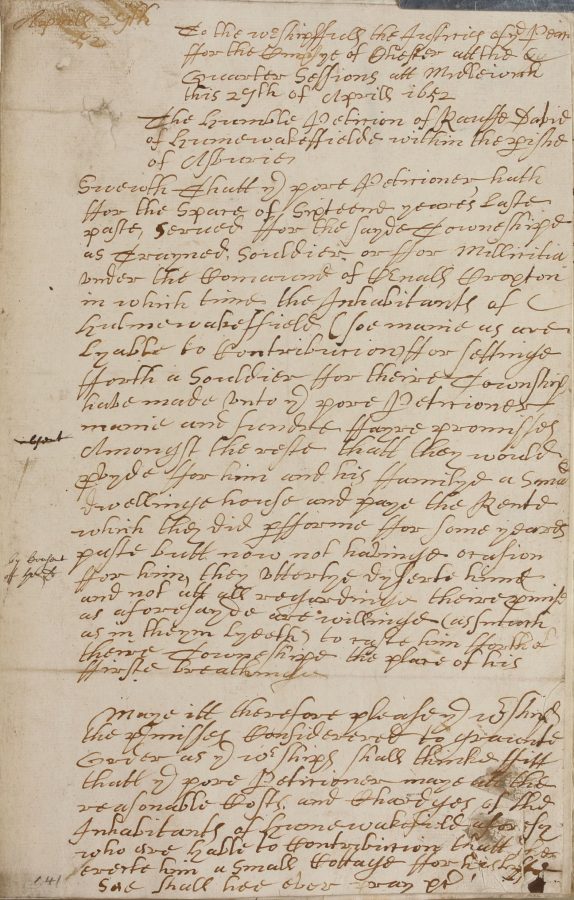 Aprill 29th
52
To the worshipffull the Justices of ye Peace
ffor the Countye of Chester att the
Quarter Sessions att Midlewich
this 29th of Aprill 1652
The humble Peticion of Rauffe David
of Humewakeffielde within the pishe
of Asburie
Sheweth Thatt yor pore Peticioner hath
ffor the Space of Sixteene yeares laste
paste, Served ffor the sayde Towneshipe
as Trayned Souldier or ffor Millitia
vnder the Comaund of Capt Croxton
in which time the Inhabitants of
Hulmewakeffield (soe manie as are
Lyable to Contribucion) ffor settinge
fforth a Souldier ffor theire Township
have made vnto yor pore Peticioner
manie and sundrie ffayre promisses
Amongst the reste thatt they would
pvyde ffor him and his ffamilye a Small
dwellinge house and paye the Rente
which they did pfforme ffor some yeares
paste butt now not havinge ocasion
ffor him, they Vtterlye dyserte him
and not att all regardinge theire pmise
as aforesayde are willinge (as much
as in theym Lyeth) to caste him fforth of
theire Towneshipe the place of his
ffirste breathinge
Maye itt therefore please yor worships
the pmisses Considerered to graunte
Order as yor worships shall thinke ffitt
thatt yor pore Peticioner maye att the
reasonable Costs and Chardges of the
Inhabitants of Humewakefield aforesd
who are Lyable to Contribucion thatt
erecte him a Small Cottage ffor
Soe shall hee ever Pray &c
141